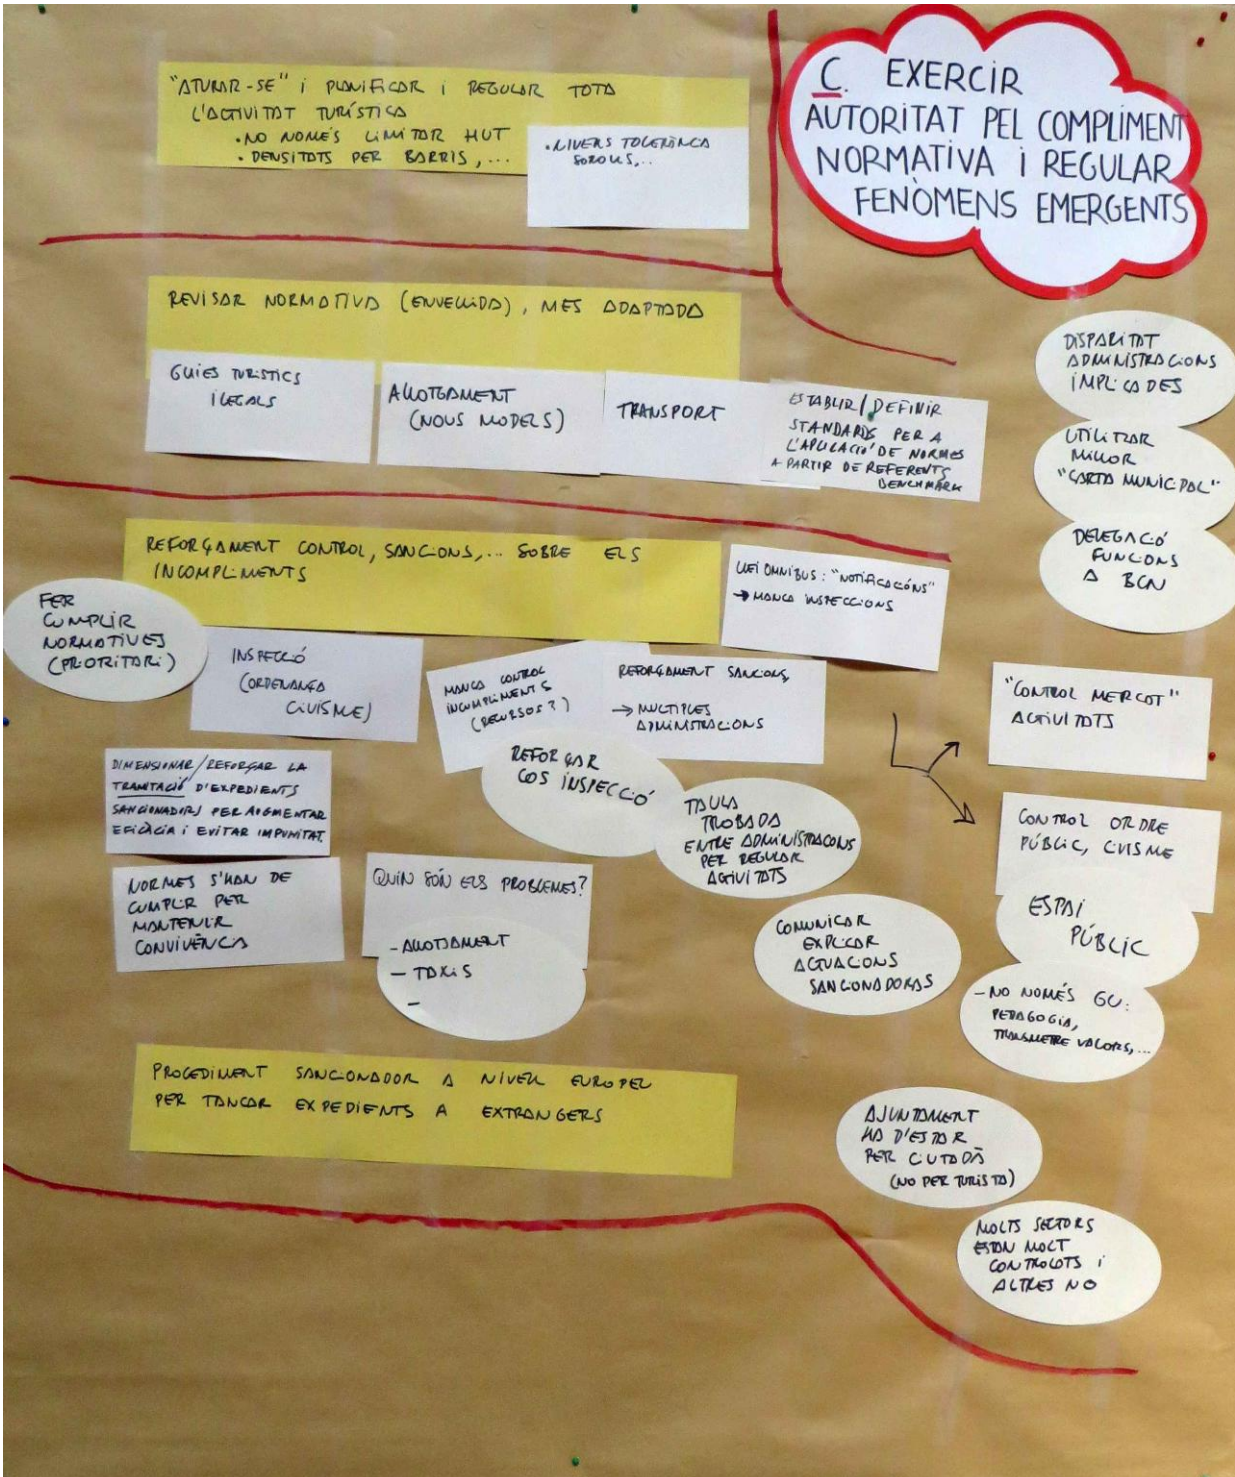 C. EXERCIR
AUTORITAT PEL COMPLIMENT
NORMATIVA I REGULAR
FENÒMENS EMERGENTS
"ATURAR-SE" i PLANIFICAR i REGULAR TOTA
L'ACTIVITAT TURÍSTICA
• NO NOMÉS LIMITAR HUT
• DENSITATS PER BARRIS,...
• NIVERS TOLERÀNCA
SOROLLS,..
REVISAR NORMATIVA (ENVELLIDA), MES ADAPTADA
GUIES TURISTICS
ILEGALS
ALLOTGAMENT
(NOUS MODELS)
TRANSPORT
ESTABLIR/DEFINIR
STANDARDS PER A
L'APLICACIÓ DE NORMES
A PARTIR DE REFERENTS
BENCHMARK
DISPARITAT
ADMINISTRACIONS
IMPLICADES
UTILITZAR
MILLOR
"CARTA MUNICIPAL"
DELEGACIÓ
FUNCIONS
A BCN
REFORÇAMENT CONTROL, SANCIONS,... SOBRE ELS
INCOMPLIMENTS
LLEI OMNIBUS: "NOTIFICACIÓNS"
→ MANCA INSPECCIONS
FER
CUMPLIR
NORMATIVES
(PRIORITARI)
INSPECCIÓ
(ORDENANÇA
CIVISME)
MANCA CONTROL
INCUMPLIMENTS
(RECURSOS?)
REFORÇAMENT SANCIONS,
→ MULTIPLES
ADMINISTRACIONS
"CONTROL MERCAT"
ACTIVITATS
DIMENSIONAR/REFORÇAR LA
TRAMITACIÓ D'EXPEDIENTS
SANCIONADORS PER AUGMENTAR
EFICÀCIA I EVITAR IMPUNITAT.
REFORÇAR
COS INSPECCIÓ
TAULA
TROBADA
ENTRE ADMINISTRACONS
PER REGULAR
ACTIVITATS
CONTROL ORDRE
PÚBLIC, CIVISME
NORMES S'HAN DE
CUMPLIR PER
MANTENIR
CONVIVÈNCIA
QUIN SÓN ELS PROBLEMES?
- ALLOTJAMENT
- TAXIS
-
COMUNICAR
EXPLICAR
ACTUACIONS
SANCIONADORAS
ESPAI
PÚBLIC
- NO NOMÉS GU:
PEDAGOGIA,
TRANSMETRE VALORS,...
PROCEDIMENT SANCIONADOR A NIVELL EUROPEU
PER TANCAR EXPEDIENTS A EXTRANGERS
AJUNTAMENT
HA D'ESTAR
PER CIUTADÀ
(NO PER TURISTA)
MOLTS SECTORS
ESTAN MOLT
CONTROLATS i
ALTRES NO